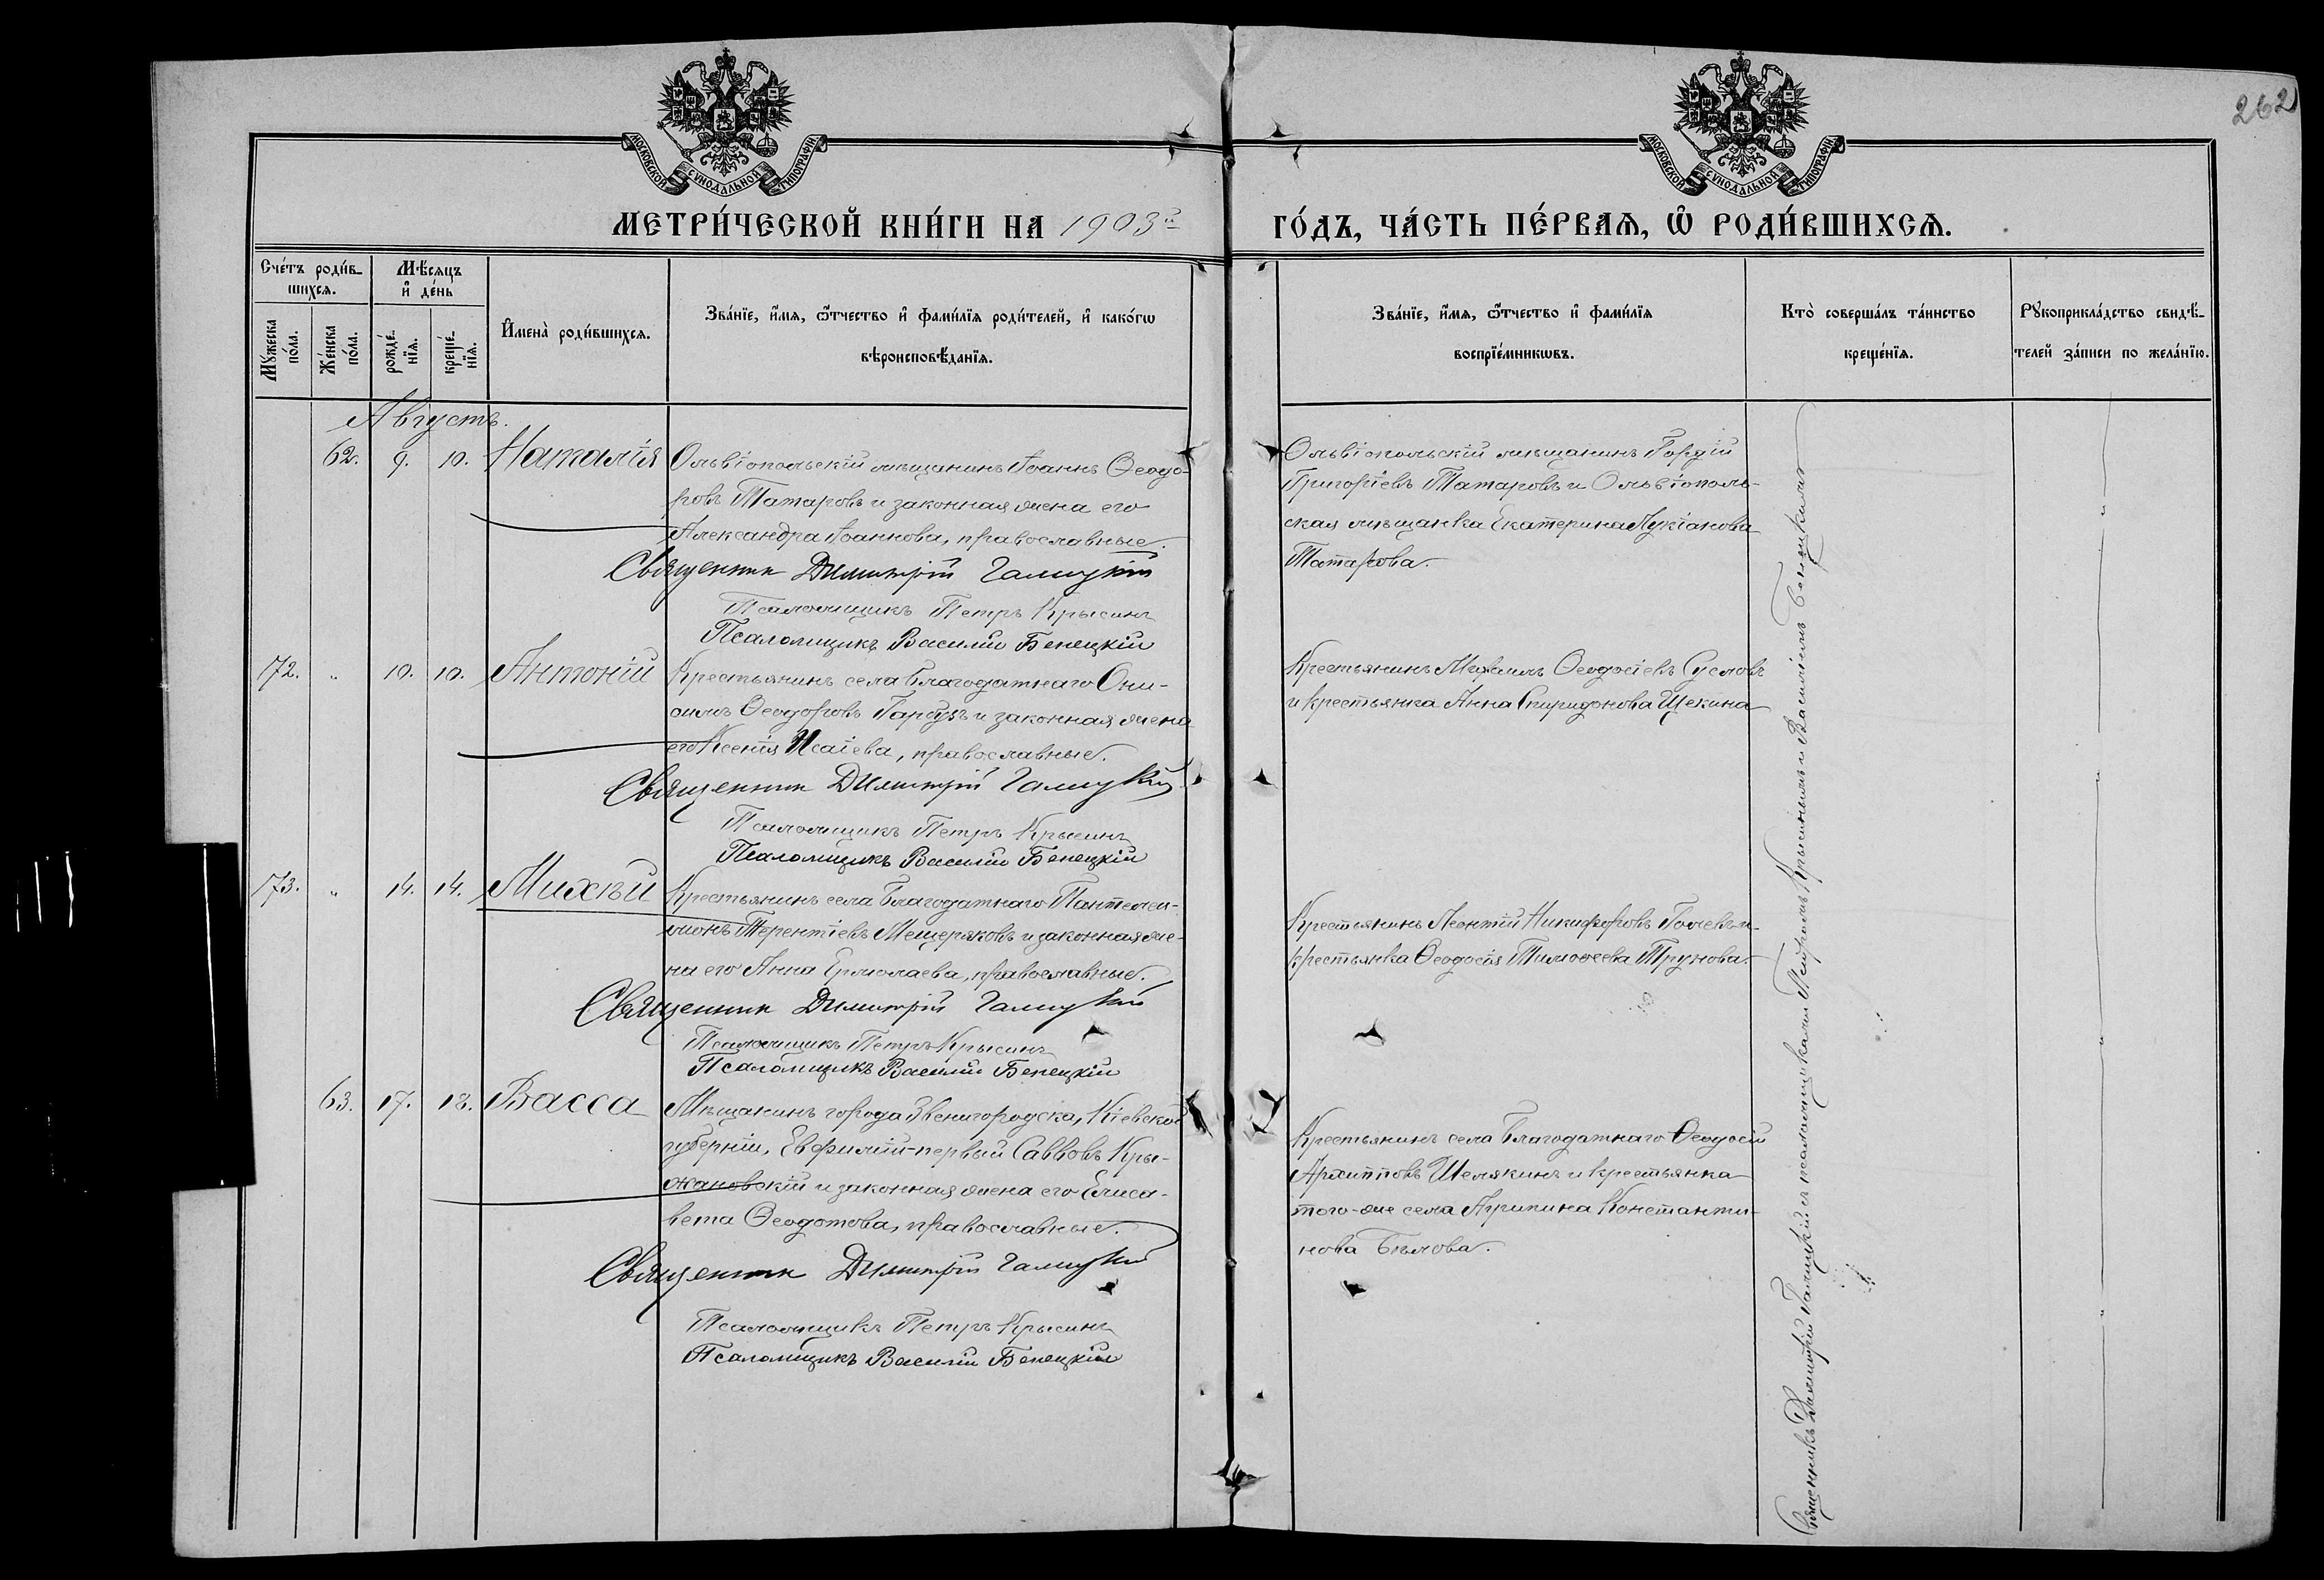 262
МОСКОВСКОЙ СѴНОДАЛЬНОЙ ТИПОГРАФІИ.
МОСКОВСКОЙ СѴНОДАЛЬНОЙ ТИПОГРАФІИ.
МЕТРИ́ЧЕСКОЙ КНИ́ГИ НА 1903й
ГО́ДЪ, ЧА́СТЬ ПЕ́РВАѦ, Ѽ РОДИ́ВШИХСѦ.
Сче́тъ роди́в-
шихсѧ.
Мѣ́сѧцъ
и҆ де́нь
Мꙋ́жеска
по́ла.
Же́нска
по́ла.
рожде́-
нїѧ.
креще́-
нїѧ.
И҆мена̀ роди́вшихсѧ.
Зва́нїе, и҆́мѧ, ѻ҆́тчество и҆ фами́лїѧ роди́телей, и҆ како́гѡ
вѣроисповѣ́данїѧ.
Зва́нїе, и҆́мѧ, ѻ҆́тчество и҆ фами́лїѧ
воспрїе́мникѡвъ.
Кто̀ соверша́лъ та́инство
креще́нїѧ.
Рꙋкоприкла́дство свидѣ́-
телей за́писи по жела́нїю.
Августъ.
62. 9. 10. Наталія
Ольвіопольскій мѣщанинъ Іоаннъ Ѳеодо-
ровъ Татаровъ и законная жена его
Александра Іоаннова, православные.
Священник Димитрій Галицкій
Псаломщикъ Петръ Крысинъ
Псаломщикъ Василій Бенецкій
Ольвіопольскій мѣщанинъ Гордій
Григоріевъ Татаровъ и Ольвіополь-
ская мѣщанка Екатерина Лукіанова
Татарова.
172. " 10. 10. Антоній
Крестьянинъ села Благодатнаго Они-
симъ Ѳеодоровъ Гарбузъ и законная жена
его Ксенія Исаіева, православные.
Священник Димитрій Галицкій
Псаломщикъ Петръ Крысинъ
Псаломщикъ Василій Бенецкій
Крестьянинъ Ѳеодосіевъ Сусловъ
и крестьянка Анна Спиридонова Щекина
173. " 14. 14. Михѣй
Крестьянинъ села Благодатнаго Пантелеи-
монъ Терентіевъ Мещеряковъ и законная же-
на его Анна Ермолаева, православные.
Священник Димитрій Галицкій
Псаломщикъ Петръ Крысинъ
Псаломщикъ Василій Бенецкій
Крестьянинъ Леонтій Никифоровъ и
крестьянка Ѳеодосія Тимоѳеева Трунова.
63. 17. 18. Васса
Мѣщанинъ города Звенигородска, Кіевской
губерніи, Евфимій-первый Саввовъ Кры-
жановскій и законная жена его Елиса-
вета Ѳеодотова, православные.
Священник Димитрій Галицкій
Псаломщикъ Петръ Крысинъ
Псаломщикъ Василій Бенецкій
Крестьянинъ села Благодатнаго Ѳеодосій
Архипповъ Шелякинъ и крестьянка
того-же села Агрипина Константи-
нова Бѣлова.
Священникъ Димитрій Галицкій съ псаломщиками Петромъ Крысинымъ и Василіемъ Бенецкимъ